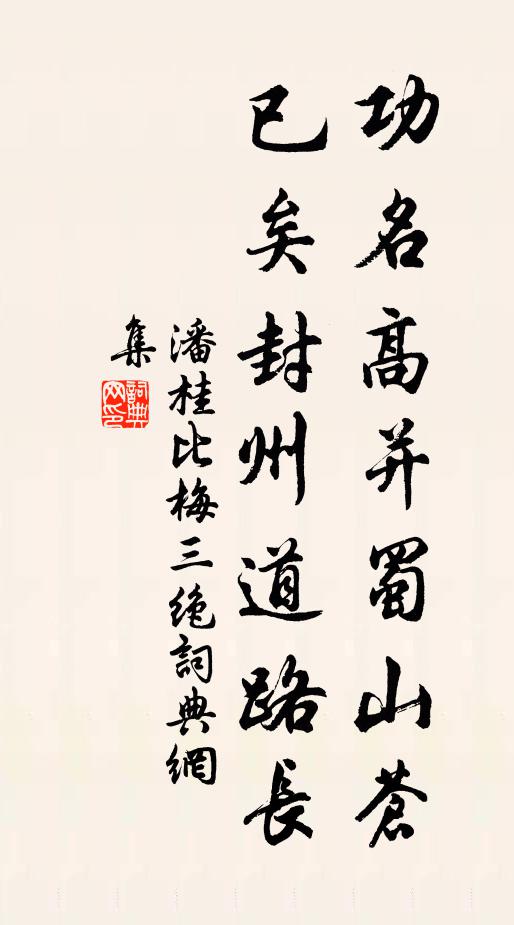 功名高并蜀山蒼
已矣封州道路長
潘桂比梅三绝詞典網
集
詞典網印